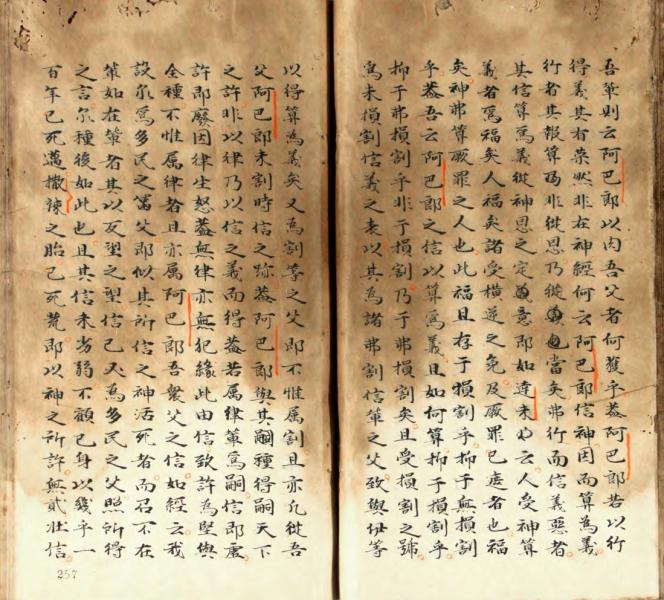 吾輩則云阿巴郎以肉吾父者何獲乎葢阿巴郎若以行
得義其有榮然非在神經何云阿巴郎信神因而算為義
行者其報算非從恩乃從當矣弗行而信義惡者
其信算為義從神恩之定意即如達未亦云人受神算
義者為福矣人福矣諸受橫逆之免及厥罪已庶者也福
矣神弗算厥罪之人也此福且存于損割乎抑于無損割
乎葢吾云阿巴郎之信以算為義且如何算抑于損割乎
抑于弗損割乎非于損割乃于弗損割矣且受損割之號
為未損割信義之表以其為諸弗損割信輩之父致與伊等
以得算為義矣又為割等之父即不惟属割且亦凡從吾
父阿巴郎未割時信之跡葢阿巴郎與其嗣種得嗣天下
之許非以律乃以信之義而得葢若属律輩為嗣信即虛
許即廢因律生怒葢無律亦無犯緣此由信致許為堅與
全種不惟属律者且亦属阿巴郎吾衆父之信如經云我
設尔為多民之父即似其所信之神活死者而召不在
輩如在輩者其以反望之望信已為多民之父照所得
之言尔種後如此也且其信未劣弱不顧已身以幾乎一
百年已死邁撒辣之胎已死荒即以神之所許無貳壯信
257